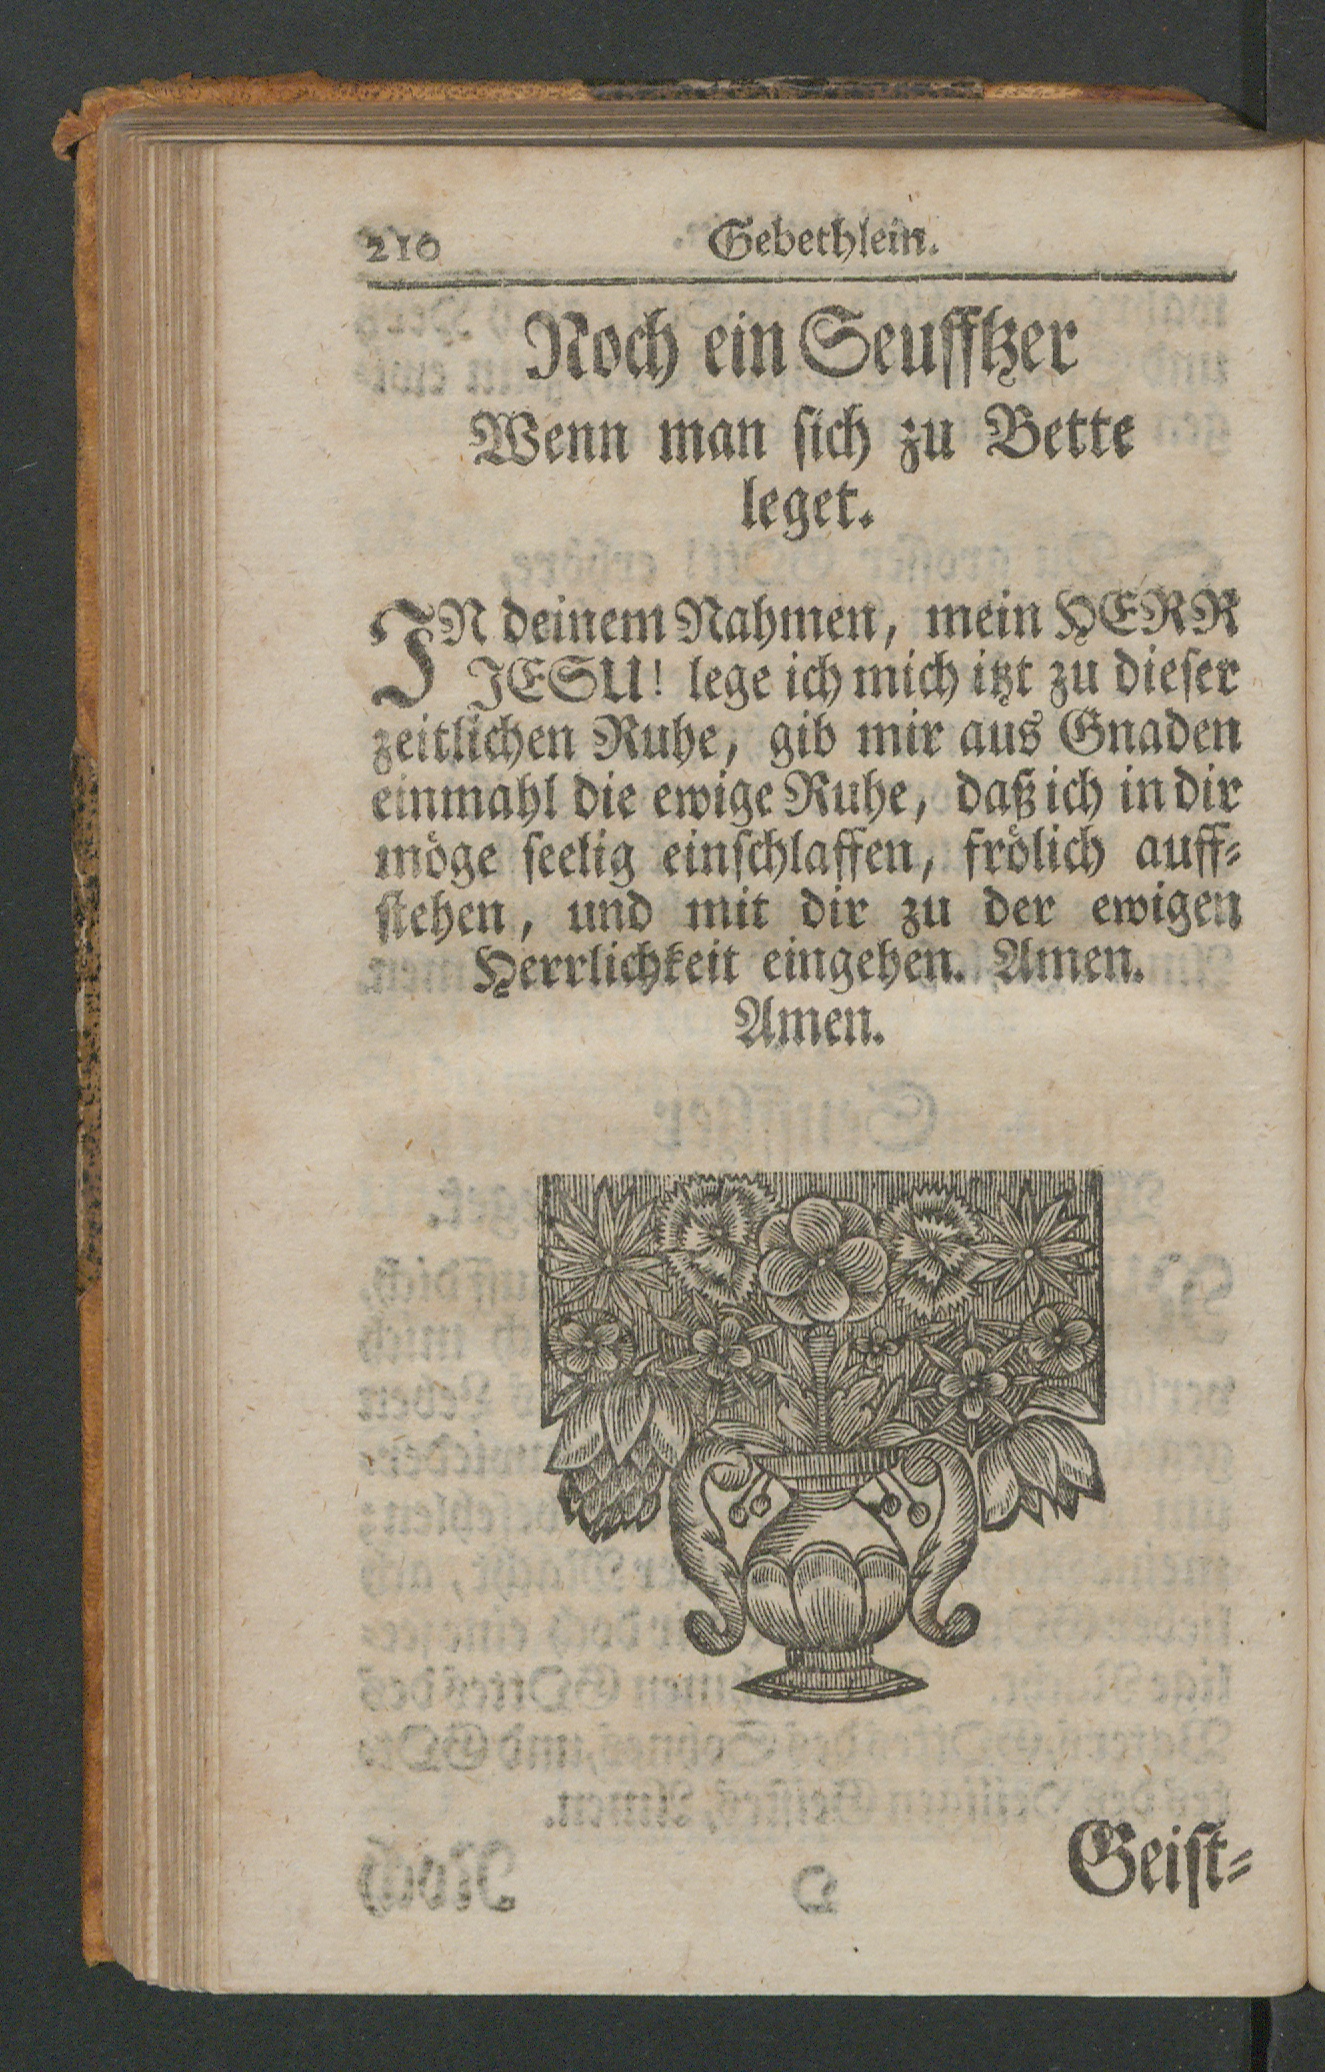 210 Gebethlein.
Noch ein Seufftzer
Wenn man sich zu Bette
leget.
IN deinem Nahmen, mein HERR
JESU! lege ich mich itzt zu dieser
zeitlichen Ruhe, gib mir aus Gnaden
einmahl die ewige Ruhe, daß ich in dir
möge seelig einschlaffen, frölich auff-
stehen, und mit dir zu der ewigen
Herrlichkeit eingehen. Amen.
Amen.
Geist-